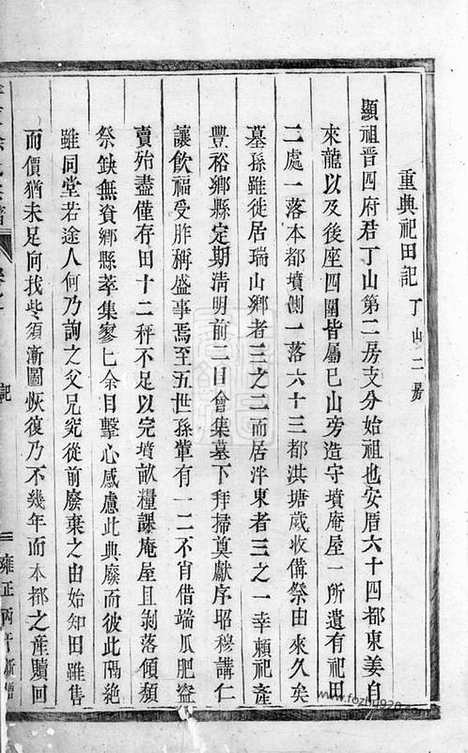 重典祀田記 丁山二房
顯祖晋四府君丁山第二房支分始祖也安厝六十四都東姜自
來龍以及後座四圍皆屬己山旁造守墳庵屋一所遺有祀田
二處一落本都墳側一落六十三都洪塘歲收備祭由來久矣
墓孫雖徙居瑞山鄉者三之二而居泮東者三之一幸頼祀產
豐裕鄉縣定期清明前二日會集墓下拜掃奠獻序昭穆講仁
讓飲福受胙稱盛事焉至五世孫軰有一二不肖借端瓜肥盜
賣殆盡僅存田十二秤不足以完墳畝糧課庵屋且剥落傾頽
祭缺無資鄉縣萃集寥匕余目擊心感慮此典廢而彼此隔絶
雖同堂若途人何乃詢之父兄究從前廢棄之由始知田雖售
而價猶未足向找些須漸圖恢復乃不幾年而本都之產贖回
記
雍正丙午新
www.fozhu920.com